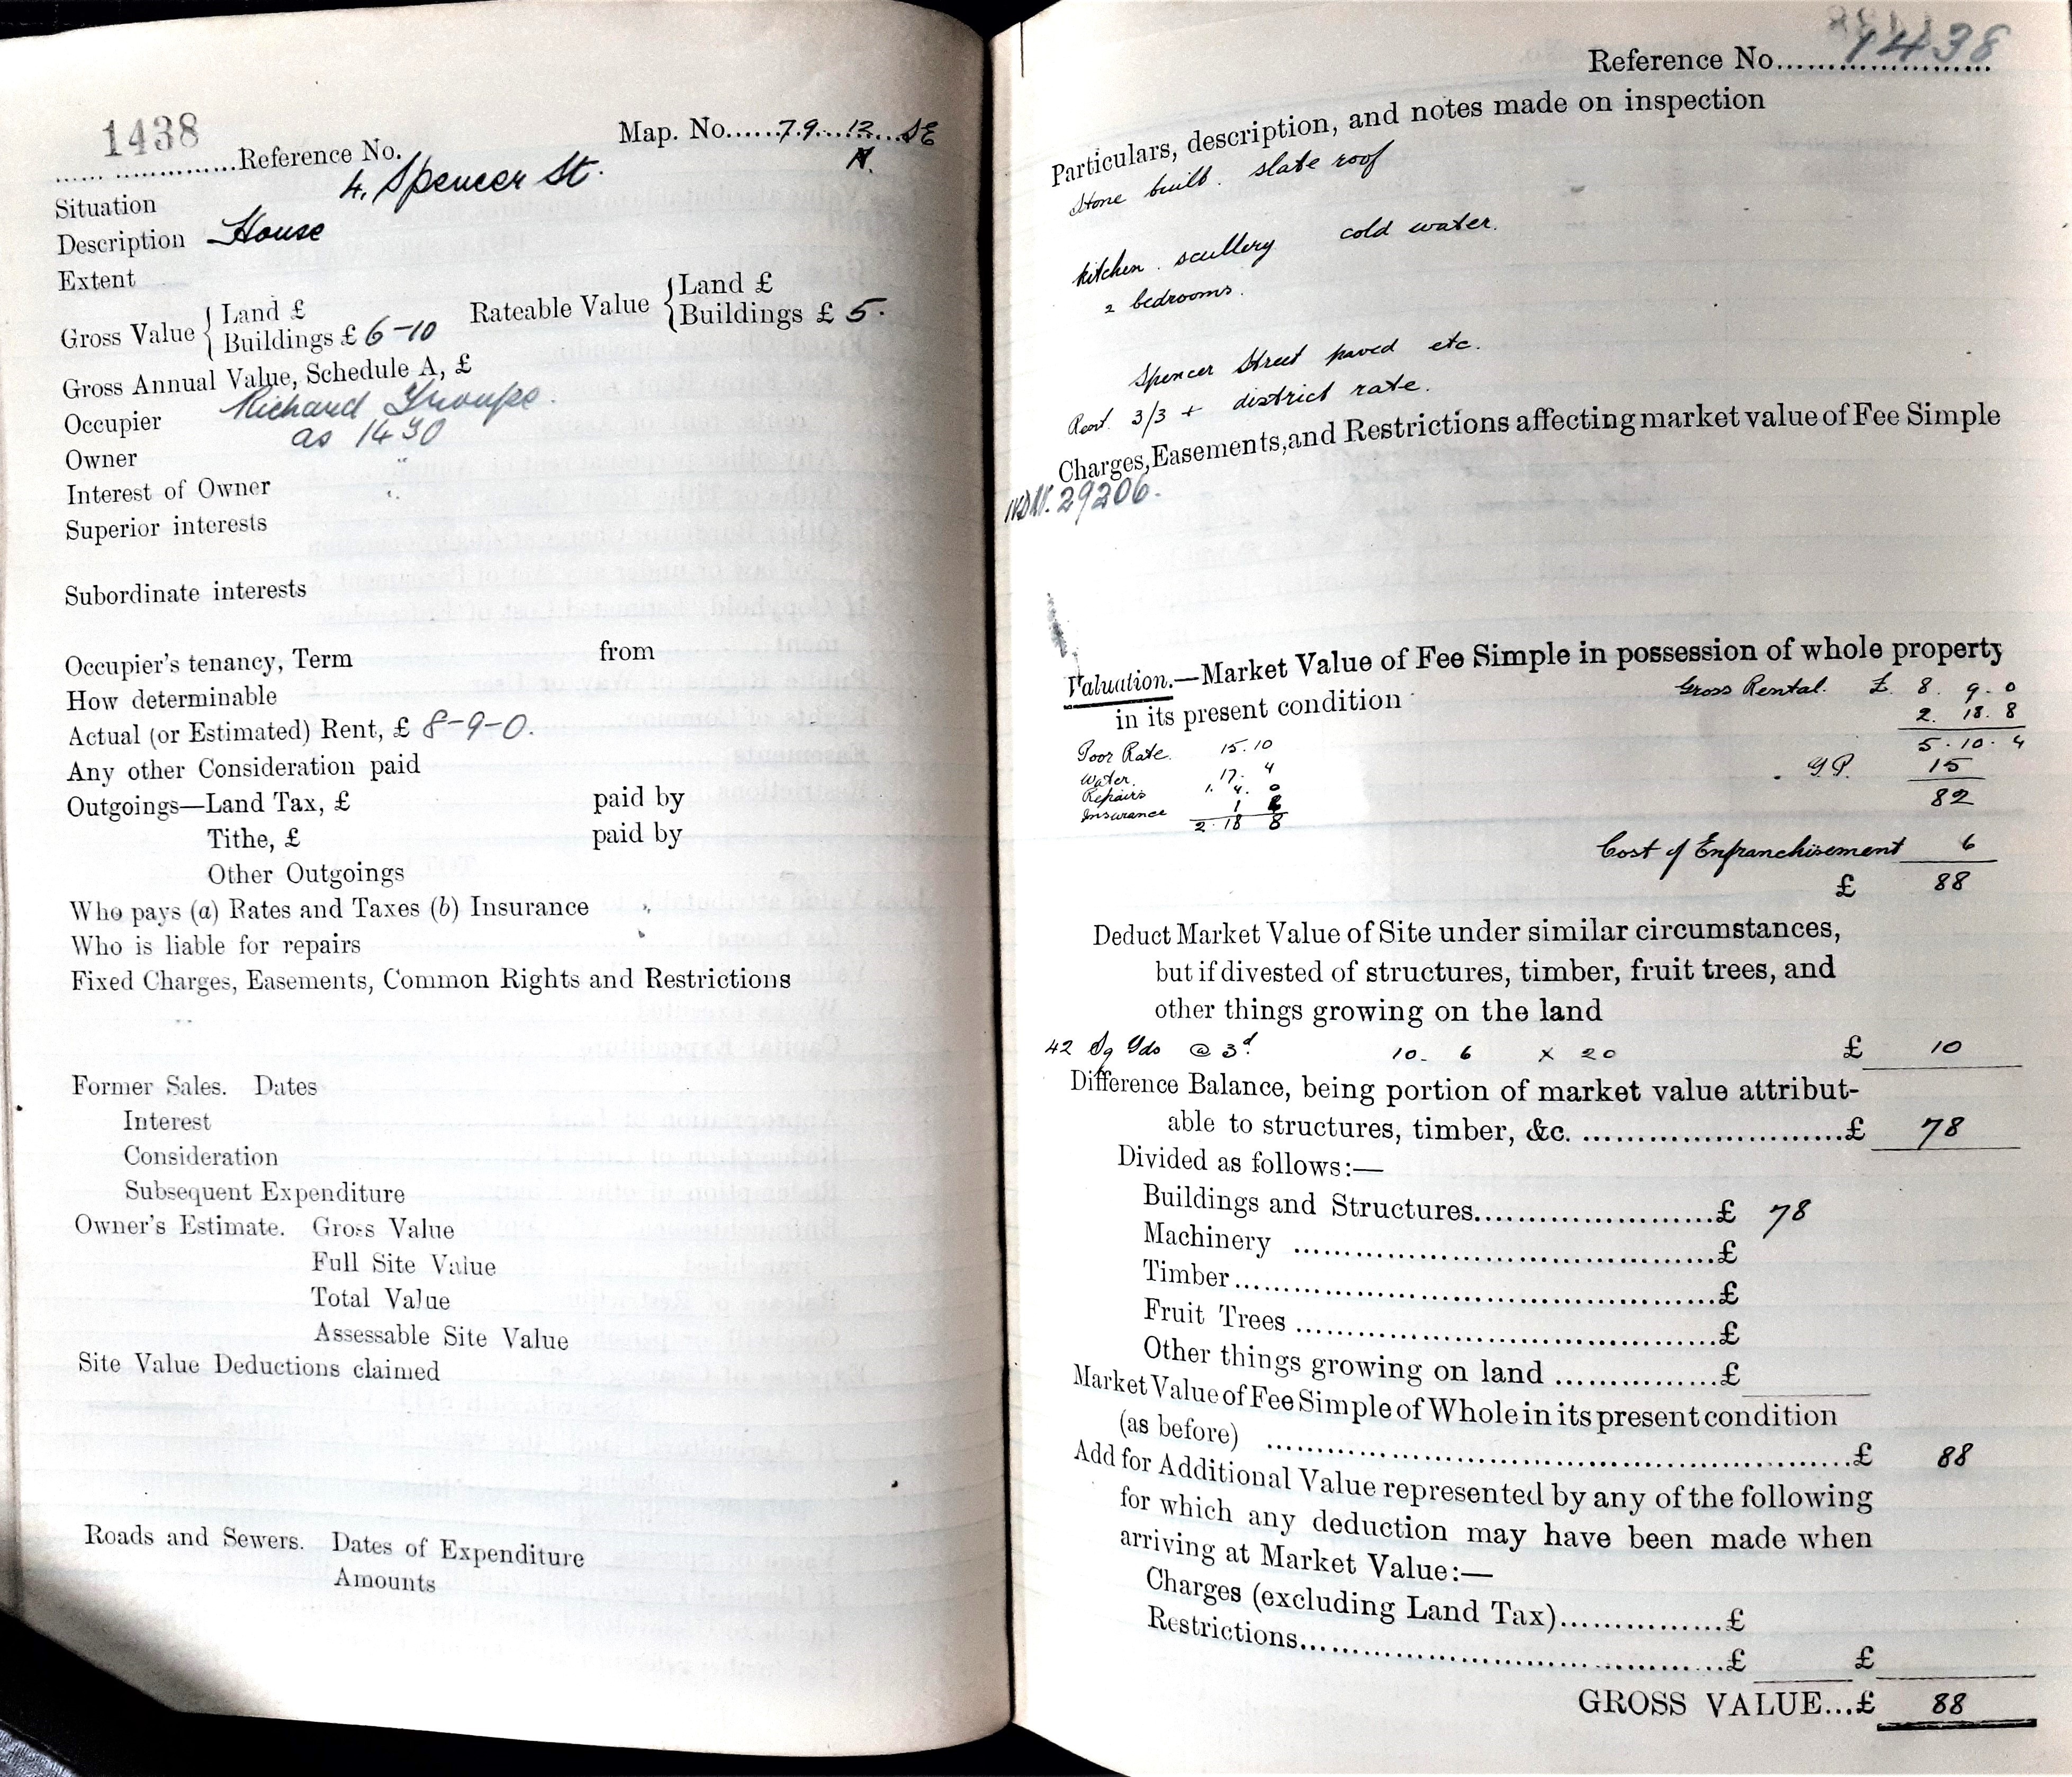 1438
...... ..............Reference No.
Map. No......79...12...SE
N.
Situation 4, Spencer St.
Description House
Extent
Gross Value { Land £
Buildings £ 6-10
Rateable Value { Land £
Buildings £ 5.
Gross Annual Value, Schedule A, £
Occupier Richard
Owner as 1430
Interest of Owner "
Superior interests "
Subordinate interests
Occupier's tenancy, Term from
How determinable
Actual (or Estimated) Rent, £ 8-9-0.
Any other Consideration paid
Outgoings—Land Tax, £ paid by
Tithe, £ paid by
Other Outgoings
Who pays (a) Rates and Taxes (b) Insurance
Who is liable for repairs
Fixed Charges, Easements, Common Rights and Restrictions
Former Sales. Dates
Interest
Consideration
Subsequent Expenditure
Owner's Estimate. Gross Value
Full Site Value
Total Value
Assessable Site Value
Site Value Deductions claimed
Roads and Sewers. Dates of Expenditure
Amounts
Reference No. 1438
Particulars, description, and notes made on inspection
Stone built. slate roof
kitchen. scullery cold water.
2 bedrooms.
Spencer Street paved etc.
Rent. 3/3 + district rate.
Charges, Easements, and Restrictions affecting market value of Fee Simple
29206.
Valuation.—Market Value of Fee Simple in possession of whole property
in its present condition
Gross Rental. £. 8. 9. 0
2. 18. 8
5. 10. 4
Y.P. 15
82
Poor Rate. 15. 10
Water. 17. 4
Repairs 1. 4. 0
Insurance 1 6
2. 18 8
Cost of Enfranchisement 6
£ 88
Deduct Market Value of Site under similar circumstances,
but if divested of structures, timber, fruit trees, and
other things growing on the land
42 Sq Yds @ 3d. 10. 6 x 20 £ 10
Difference Balance, being portion of market value attribut-
able to structures, timber, &c. ..........................£ 78
Divided as follows:—
Buildings and Structures........................£ 78
Machinery ..........................................£
Timber................................................£
Fruit Trees .........................................£
Other things growing on land ................£
Market Value of Fee Simple of Whole in its present condition
(as before) ............................................................£ 88
Add for Additional Value represented by any of the following
for which any deduction may have been made when
arriving at Market Value:—
Charges (excluding Land Tax)................£
Restrictions..........................................£ £
GROSS VALUE...£ 88